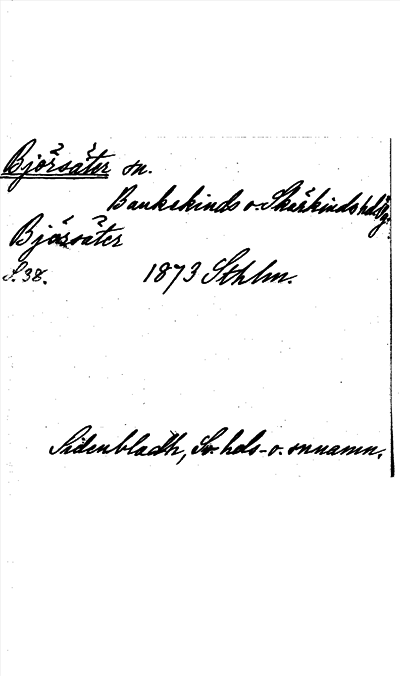 Björsäter sn.
Bankekinds o. Skärkinds hd
Björsäter
S. 38. 1873 Sthlm.
Sidenbladh, Sv. hds- o. snnamn.